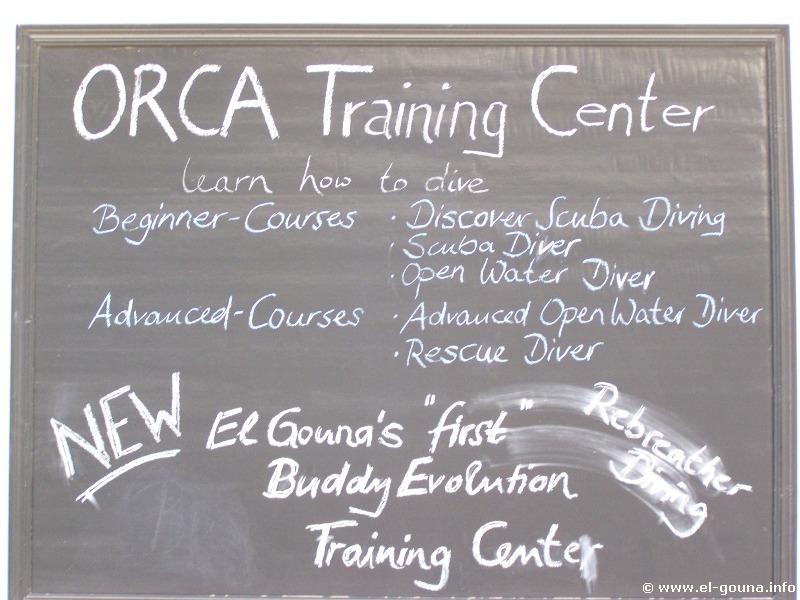 ORCA Training Center
learn how to dive
Beginner-Courses · Discover Scuba Diving
· Scuba Diver
· Open Water Diver
Advanced-Courses · Advanced Open Water Diver
· Rescue Diver
NEW El Gouna's "first"
Buddy Evolution
Training Center
Rebreather
Diving
© www.el-gouna.info